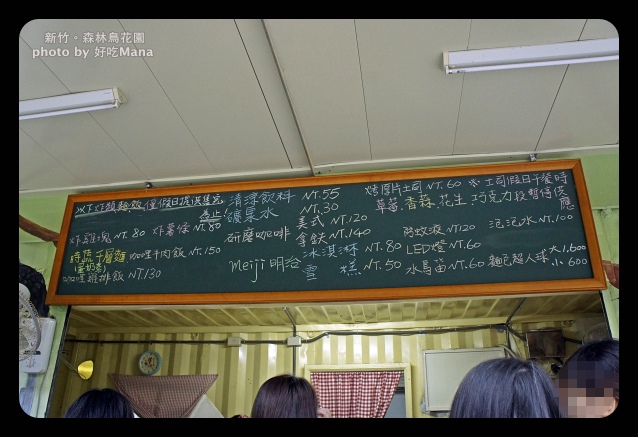 新竹。森林鳥花園
photo by 好吃Mana
以下炸類麵飯僅假日提供售完為止
炸雞塊 NT.80 炸薯條 NT.80
時蔬千層麵
(蛋奶素)
咖哩牛肉飯 NT.150
咖哩雞排飯 NT.130
清淨飲料 NT.55
礦泉水 NT.30
研磨咖啡 美式 NT.120
拿鐵 NT.140
Meiji 明治 冰淇淋 NT.80
雪糕 NT.50
烤厚片土司 NT.60 ※土司假日午後時段暫停供應
草莓、香蒜、花生、巧克力
防蚊液 NT120 泡泡水 NT.100
LED燈 NT.60
水鳥笛 NT.60 麵包超人球 大1,600
小 600